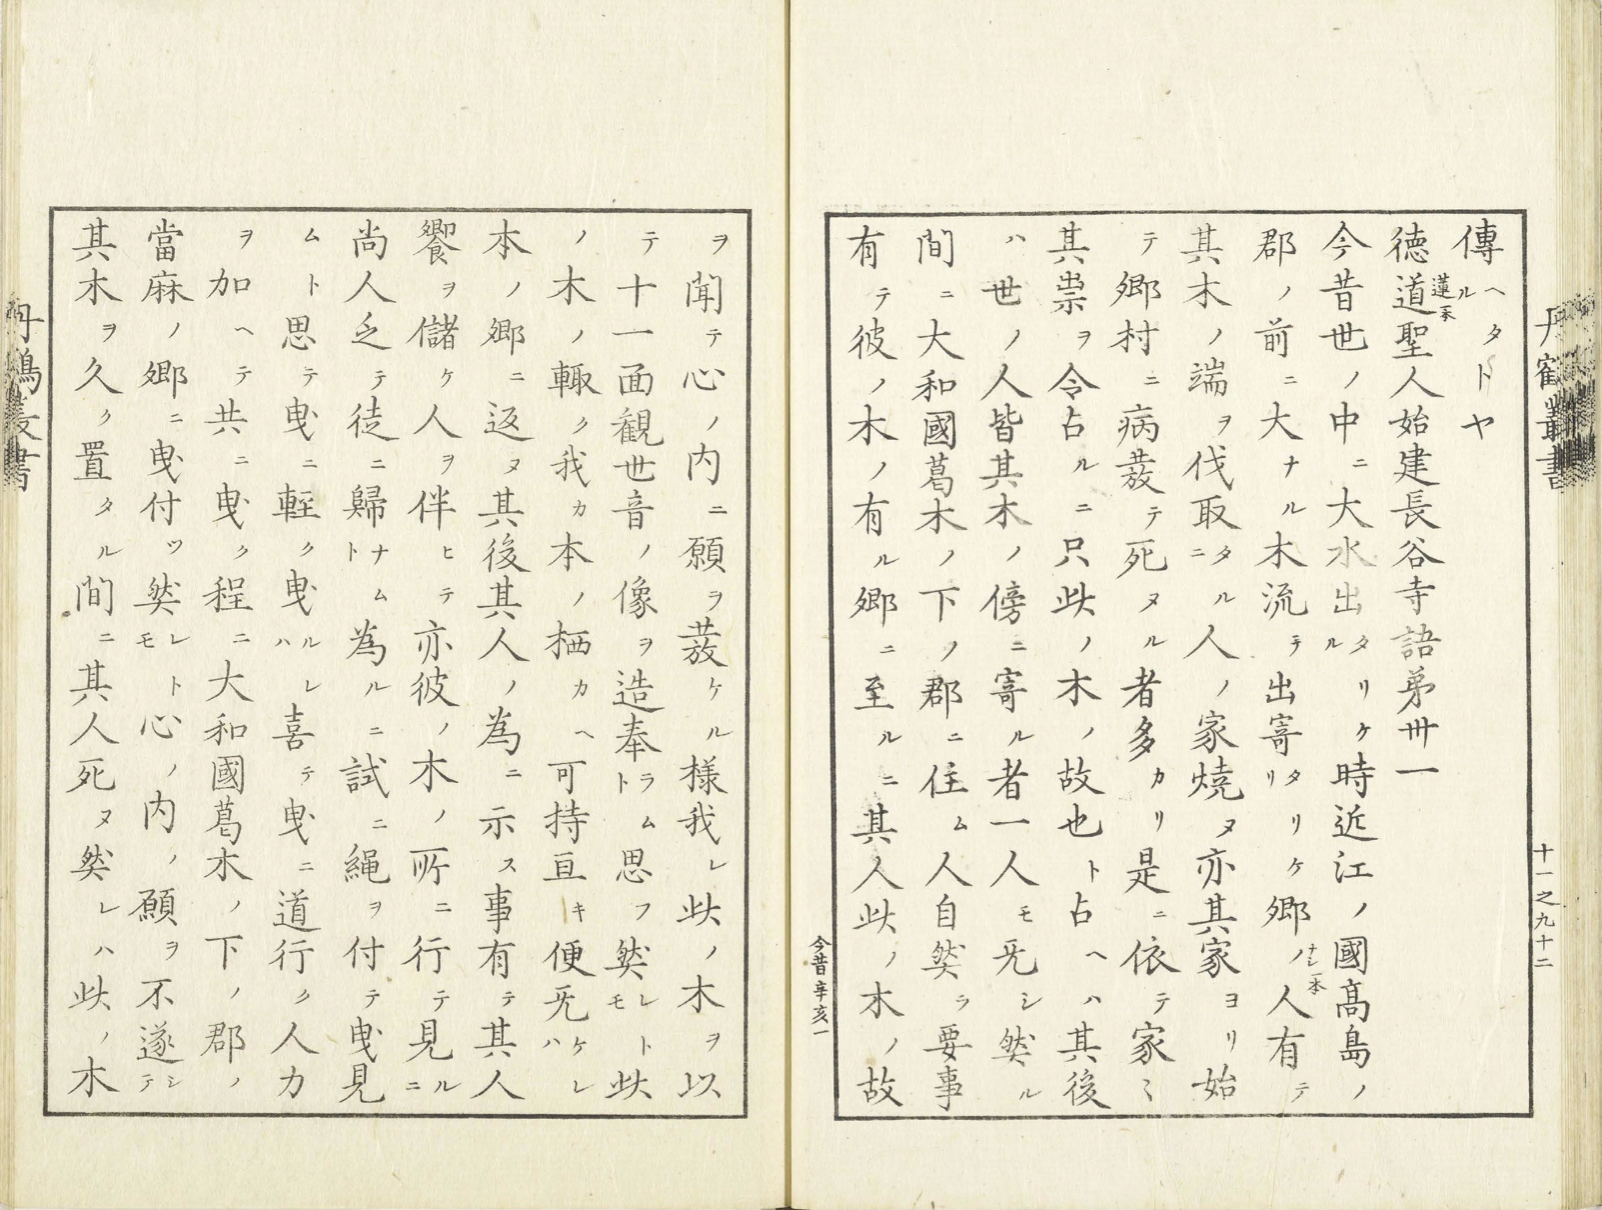 傳ヘルタトヤ
德道聖人始建長谷寺語弟卅一
蓮一本
今昔世ノ中ニ大水出タルリケ時近江ノ國髙島ノ
郡ノ前ニ大ナル木流テ出寄タリリケ郷ノ人有テ
ナシ一本
其木ノ端ヲ伐取タニル人ノ家燒ヌ亦其家ヨリ始
テ郷村ニ病發テ死ヌル者多カリ是ニ依テ家〻
其祟ヲ令占ルニ只此ノ木ノ故也ト占ヘハ其後
ハ世ノ人皆其木ノ傍ニ寄ル者一人モ无シ然ル
間ニ大和國葛木ノ下ノ郡ニ住ム人自然ラ要事
有テ彼ノ木ノ有ル郷ニ至ルニ其人此ノ木ノ故
ヲ聞テ心ノ内ニ願ヲ發ケル様我レ此ノ木ヲ以
テ十一面觀世音ノ像ヲ造奉ラトム思フ然レモト此
ノ木ノ輙ク我カ本ノ栖カヘ可持亘キ便无ケハレ
本ノ郷ニ返ヌ其後其人ノ為ニ示ス事有テ其人
饗ヲ儲ケ人ヲ伴ヒテ亦彼ノ木ノ所ニ行テ見ルニ
尚人乏テ徒ニ歸ナトム為ルニ試ニ繩ヲ付テ曳見
ムト思テ曳ニ輕ク曳ルハレ喜テ曳ニ道行ク人力
ヲ加ヘテ共ニ曳ク程ニ大和國葛木ノ下ノ郡ノ
當麻ノ郷ニ曳付ツ然レモト心ノ内ノ願ヲ不遂シテ
其木ヲ久ク置タル間ニ其人死ヌ然レハ此ノ木
丹鶴叢書
十一之九十二
今昔 辛亥一
丹鶴叢書